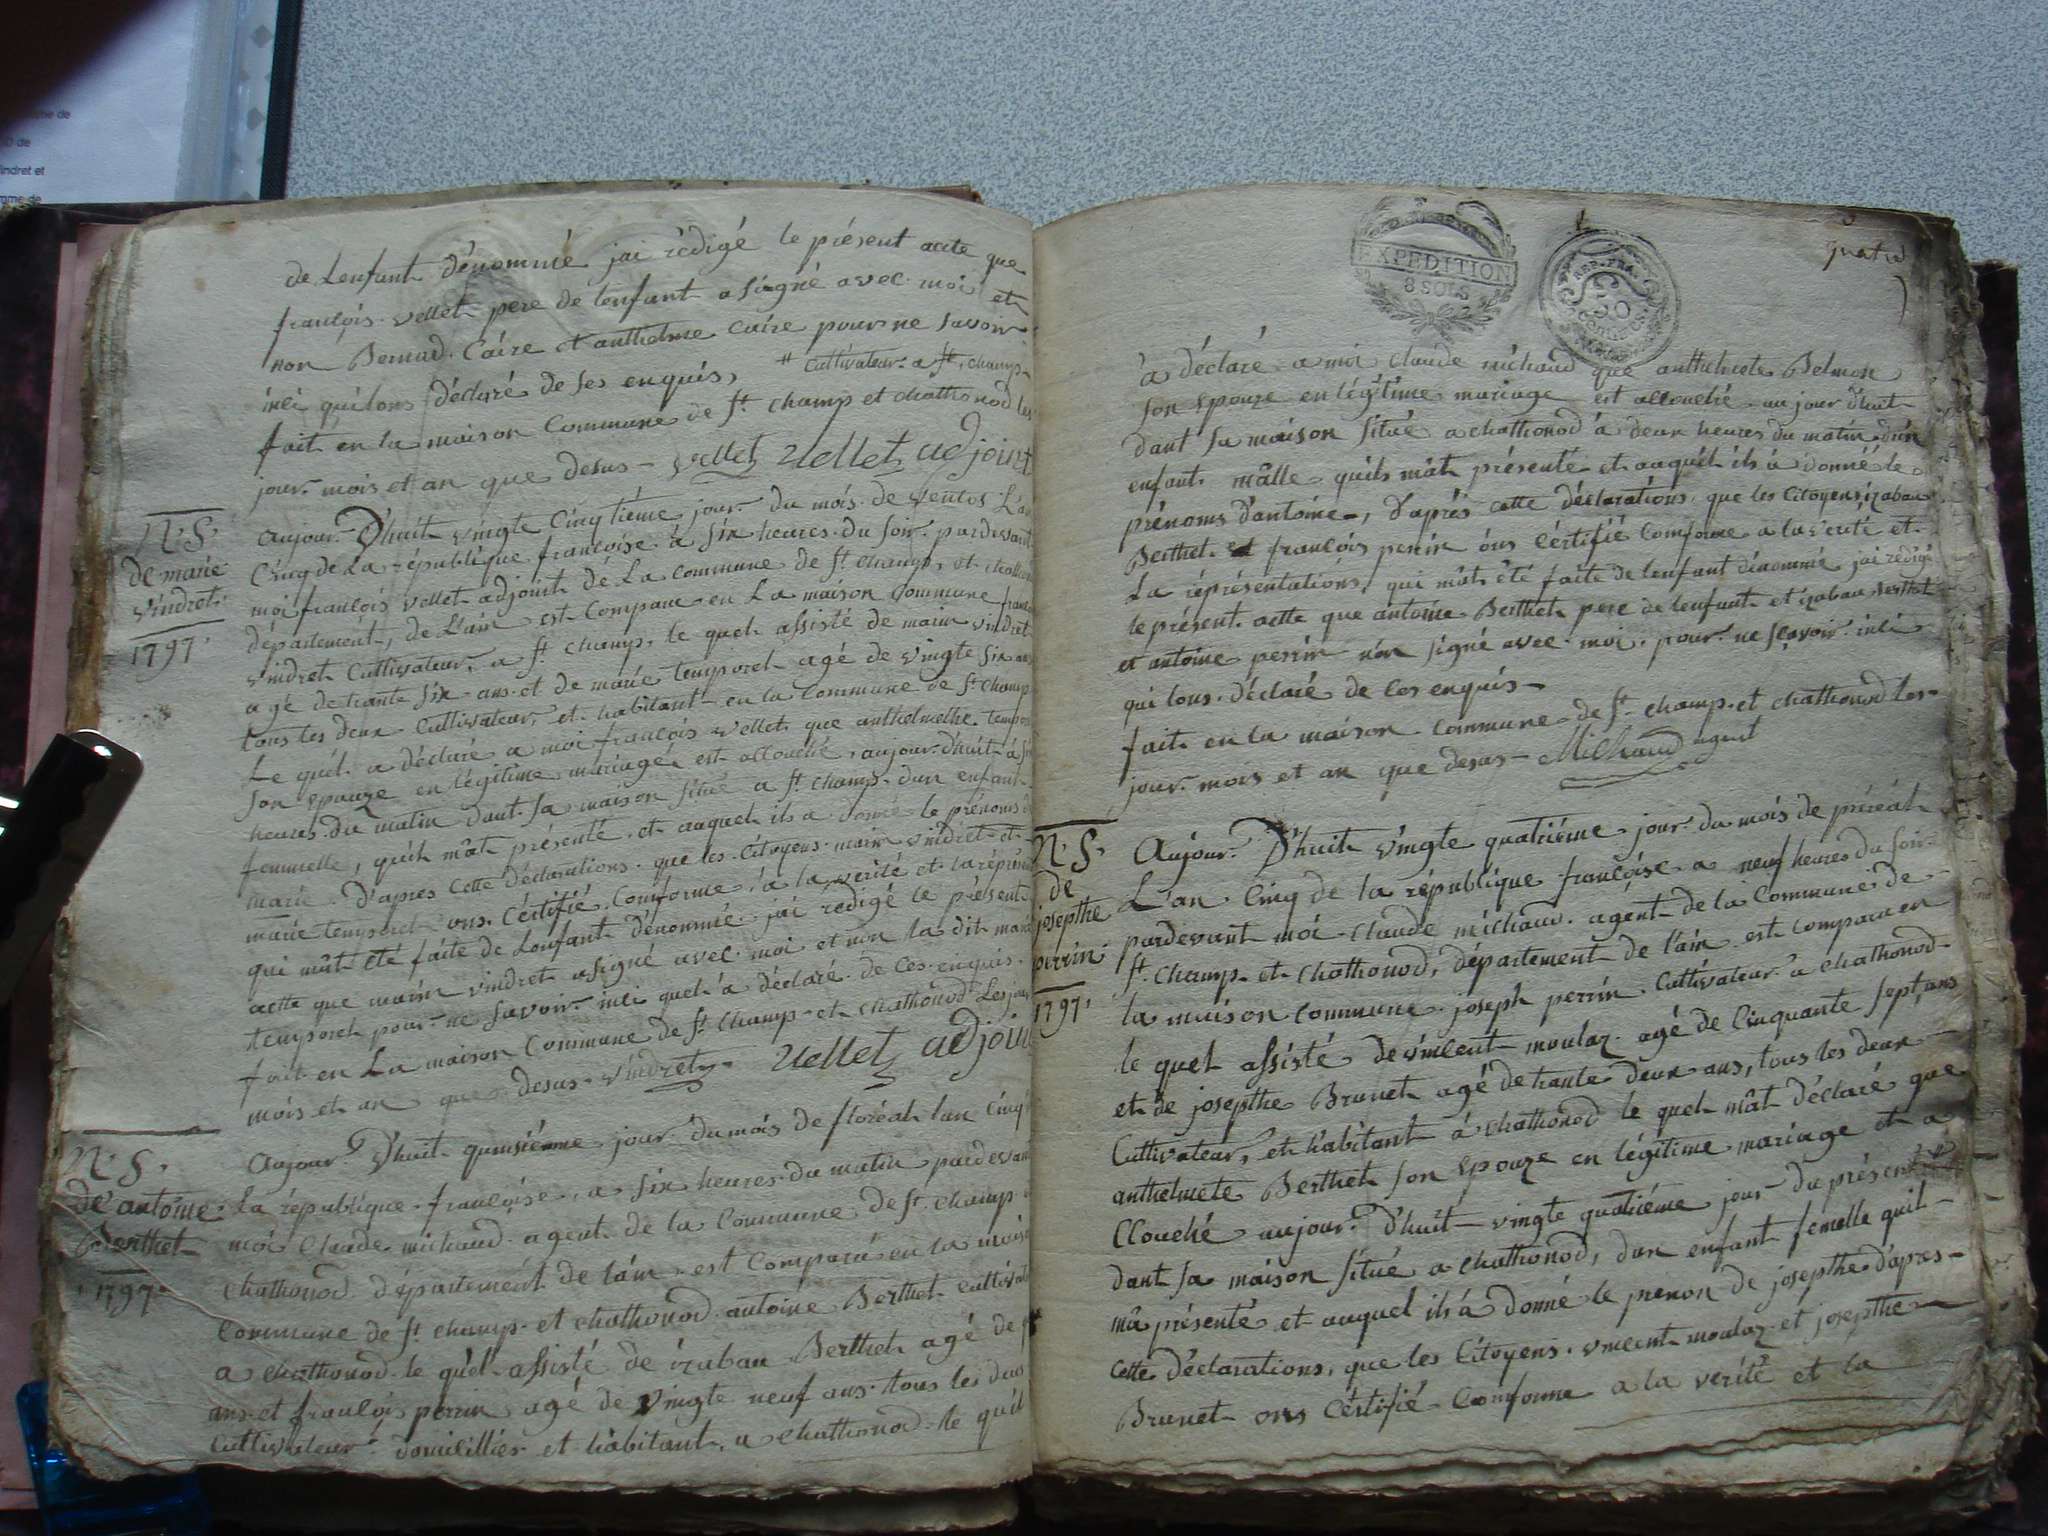 de Lenfant dénommé jai rédigé le présent acte que
françois vellet pere de lenfant a signé avec moi et
non Bernad Caire et anthelme Caire pour ne savoir
# Cultivateur a st champ
inli quilons déclaré de ses enquis,
fait en la maison Commune de st champ et chathonod les
jour mois et an que desus vellet vellet adjoint
N.S.
de marie
vindret
1797
Aujour D'huit vingte Cinqtième jour du mois de ventos L'an
Cinq de La république françoise à six heures du soir pardevant
moi françois vellet adjoint de La commune de st champ et
département de L'ain est Comparu en La maison Commune
vindret Cultivateur a st champ le quel assisté de marin vindret
agé de trante six ans et de marie temporel agé de vingte six ans
tous les deux Cultivateur et habitant en la Commune de st champ
Le quel a déclaré a moi françois vellet que anthelmethe
son epouze en légitime mariage est allouché aujour d'huit à
heures du matin dant sa maison situé a st champ dun enfant
femmelle, quil m'at présenté et auquel ils a donné le prénoms
marie D'apres Cette déclarations que les Citoyens marin vindret et
marie temporel ons Certifié Comforme a la verité et la
qui mût eté faite de Lenfant dénommé jai rédigé le présent
actte que marin vindret a signé avec moi et non la dit
temporel pour ne savoir inli quel a déclaré de Ces enquis
fait en La maison Commune de st champ et chathonod Les jour
mois et an que desus vindret vellet adjoin
N.S.
de antoine
Berthet
1797
Aujour D'huit quinsiémme jour du mois de floréal lan cinq
La république françoise a six heures du matin pardevant
moi Claude michaud agent de la Commune de st champ
chathonod département de lain est Comparu en la
Commune de st champ et chathonod antoine Berthet
a chathonod le quel assisté de izabau Berthet agé de
ans et françois perrin agé de vingte neuf ans tous les deux
Cultivateur domicillier et habitant a chathonod le quel
EXPEDITION
8 SOLS
REP. FRA.
50
CENT.
à déclaré a moi Claude michaud que anthelmete Belmon
son epouze en légitime mariage est allouché aujour d'huit
dant sa maison situé a chathonod à deux heures du matin d'un
enfant mâlle quils m'ât présenté et auquel ils à donné le
prénoms d'antoine, D'aprés cette déclarations que les Citoyens izabau
Berthet et françois perrin ons Certifié Comforme a la verité et
La réprésentations qui mât été faite de lenfant dénommé jai rédigé
le présent actte que antoine Berthet pere de lenfant et izabau Berthet
et antoine perrin nón signé avec moi pour ne sçavoir inli
qui lons déclaré de Ces enquis
fait en la maison commune de st champ et chathonod Les
jour mois et an que desus Michaud agent
N.S.
de
josepthe
perrin
1797
Aujour D'huit vingte quatriéme jour du mois de préréal
L'an Cinq de la république françoise a neuf heures du soir
pardevant moi Claude michaud agent de la Commune de
st champ et chathonod, département de l'ain est comparu en
la maison commune joseph perrin Cultivateur a chathonod
le quel assisté de vincent moulaz agé de Cinquante sept ans
et de josepthe Brunet agé de trante deux ans, tous les deux
Cultivateur, et habitant à chathonod le quel mât déclaré que
anthelmete Berthet son epouze en légitime mariage et a
Clouché aujour D'huit vingte quatriéme jour du présent
dant sa maison situé a chathonod, dun enfant femelle quil
mâ présenté et auquel ils à donné le prenon de josepthe d'apres
Cette déclarations, que les Citoyens vincent moulaz et josepthe
Brunet ons Certifié Comforme a la verité et la